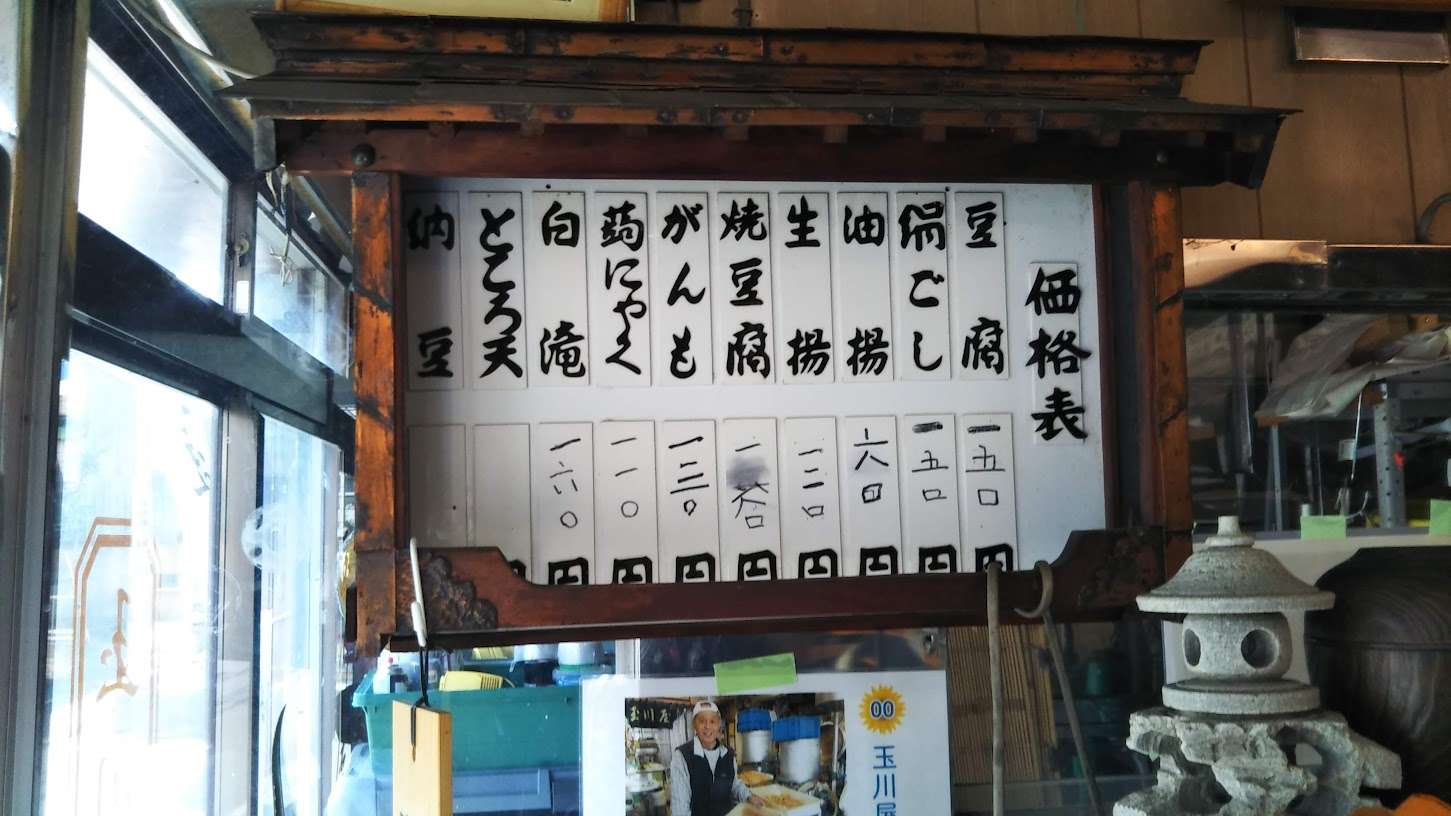 価格表
豆腐
一五〇円
絹ごし
一五〇円
油揚
六〇円
生揚
一二〇円
焼豆腐
円
がんも
一三〇円
蒟にゃく
一一〇円
白滝
一六〇円
ところ天
納豆
玉川屋
00
玉川屋